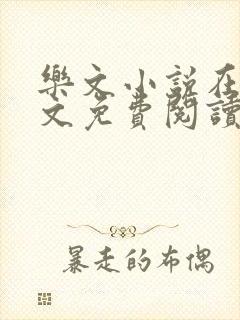 樂文小說在
文免費閱讀
暴走的布偶